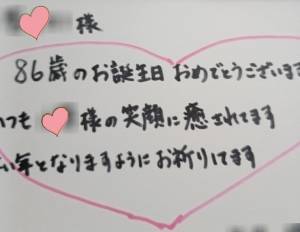 様
86歳のお誕生日 おめでとうございます
いつも 様の笑顔に癒されてます
い年となりますようにお祈りしてます